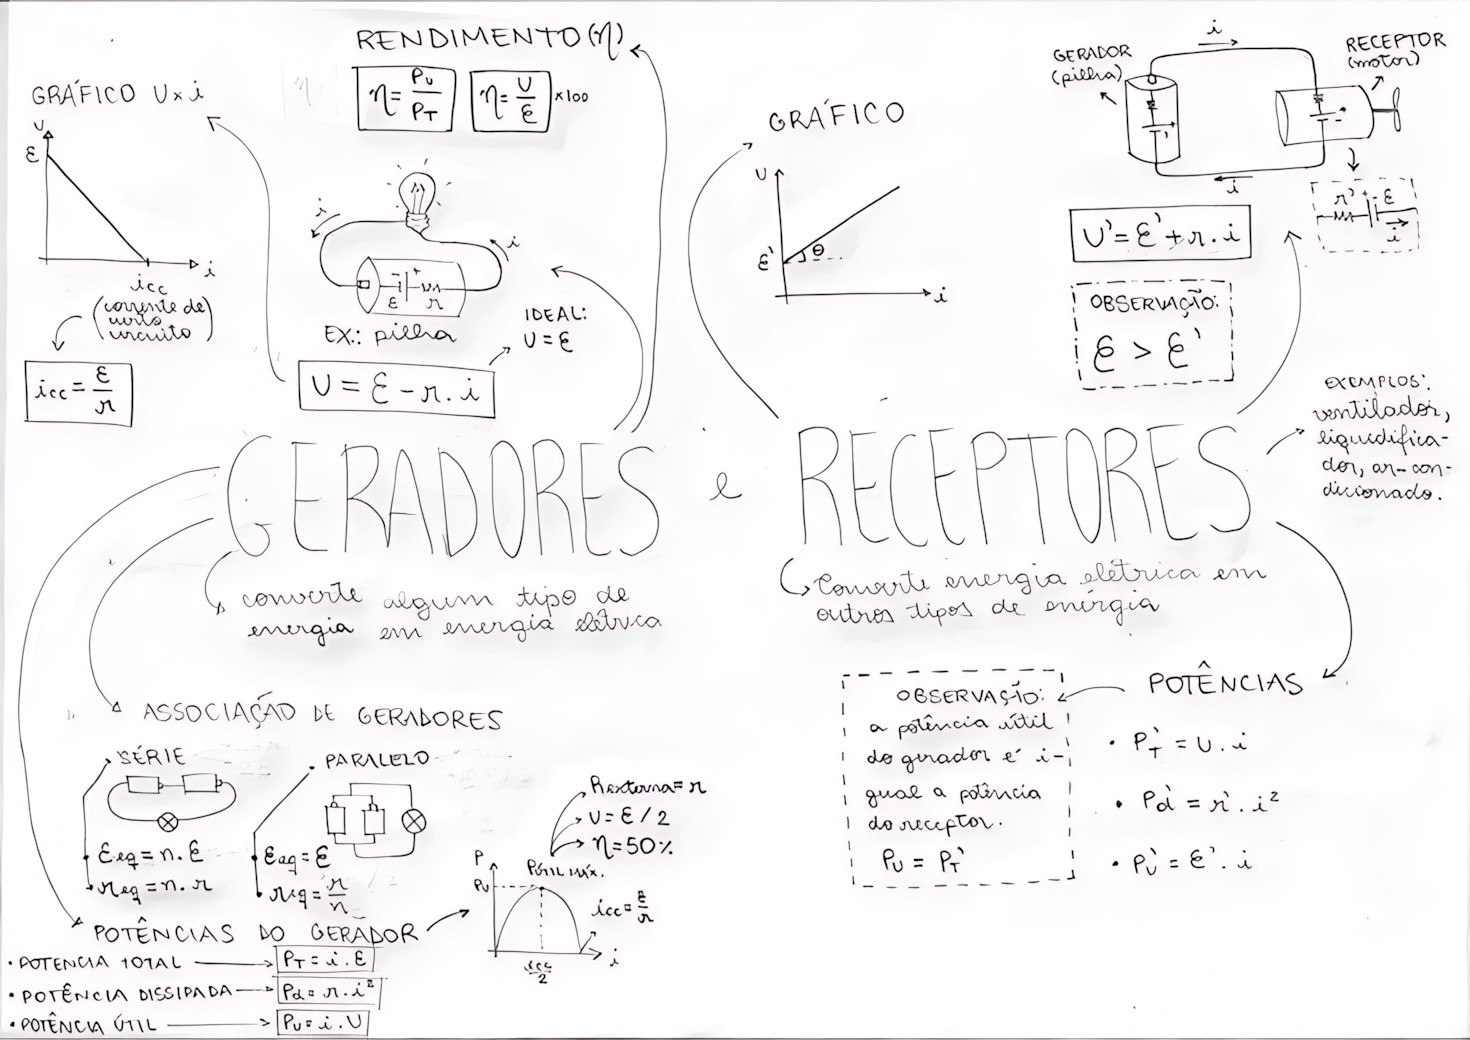 RENDIMENTO (η)
η = Pu / PT
η = U / ε ×100
GRÁFICO U × i
U
ε
i
icc
(corrente de
curto
circuito)
icc = ε / r
i
i
ε
- +
r
EX.: pilha
IDEAL:
U = ε
U = ε - r . i
GRÁFICO
U
ε'
θ
i
GERADOR
(pilha)
i
RECEPTOR
(motor)
i
r' + - ε
i
U' = ε' + r . i
OBSERVAÇÃO:
ε > ε'
EXEMPLOS:
ventilador,
liquidifica-
dor, ar-con-
dicionado.
GERADORES e RECEPTORES
converte algum tipo de
energia em energia elétrica
Converte energia elétrica em
outros tipos de energia
ASSOCIAÇÃO DE GERADORES
SÉRIE
εeq = n. ε
req = n. r
PARALELO
εeq = ε
req = r / n
Rexterna = r
U = ε / 2
η = 50%
P
Pu
PÚTIL MÁX.
icc = ε / r
icc / 2
i
POTÊNCIAS DO GERADOR
• POTENCIA TOTAL PT = i . ε
• POTÊNCIA DISSIPADA Pd = r . i²
• POTÊNCIA ÚTIL Pu = i . U
POTÊNCIAS
• PT' = U . i
• Pd' = r' . i²
• PU' = ε' . i
OBSERVAÇÃO:
a potência útil
do gerador é i-
gual a potência
do receptor.
PU = PT'